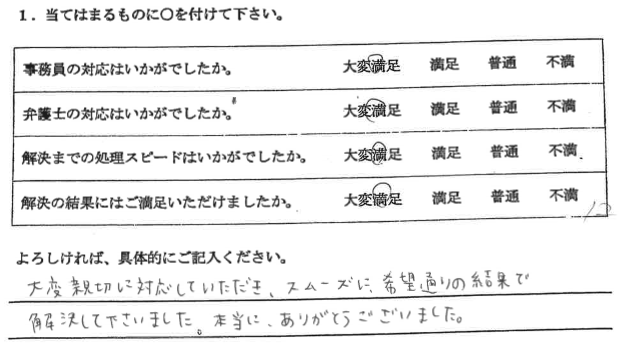 1．当てはまるものに〇を付けて下さい。
事務員の対応はいかがでしたか。 大変満足 満足 普通 不満
弁護士の対応はいかがでしたか。 大変満足 満足 普通 不満
解決までの処理スピードはいかがでしたか。 大変満足 満足 普通 不満
解決の結果にはご満足いただけましたか。 大変満足 満足 普通 不満
よろしければ、具体的にご記入ください。
大変親切に対応していただき、スムーズに、希望通りの結果で
解決して下さいました。本当に、ありがとうございました。